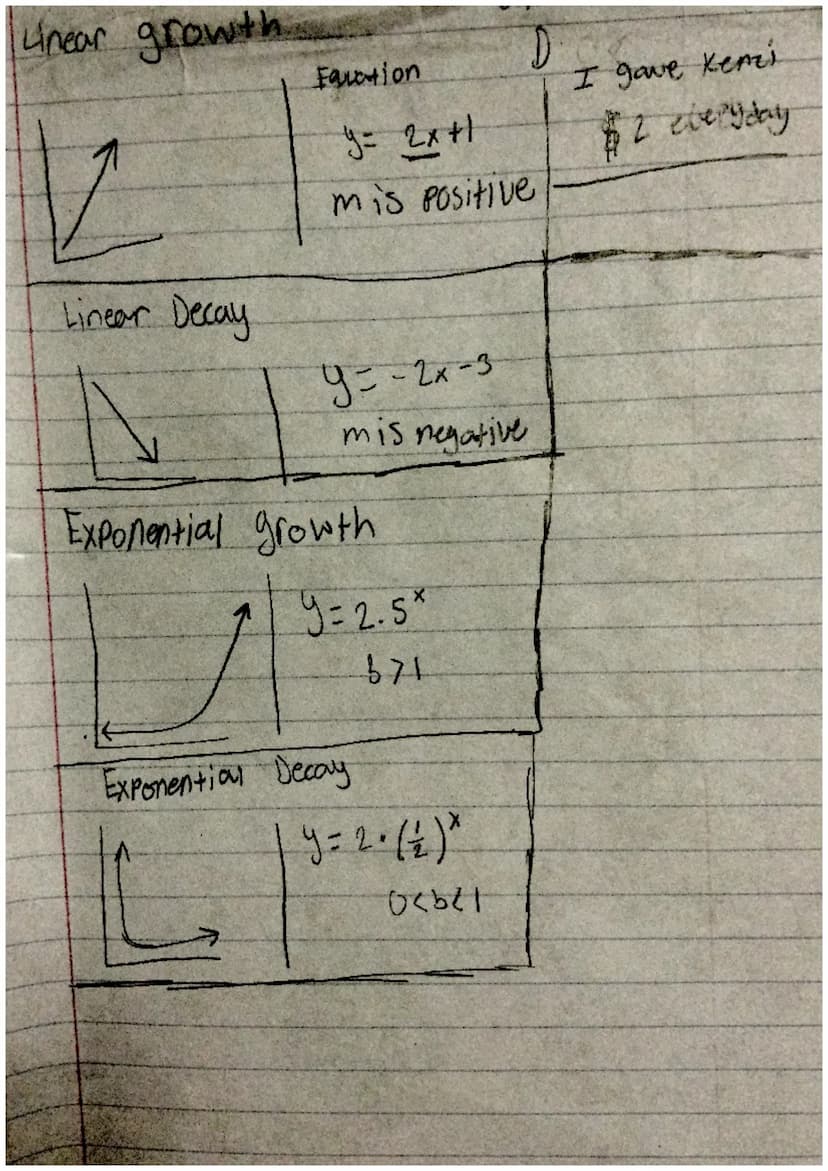 Linear growth
Equation
y= 2x+1
m is positive
D
I gave Kenzi
$2 everyday
Linear Decay
y= -2x-3
m is negative
Exponential growth
y=2.5ˣ
b>1
Exponential Decay
y=2·(1/2)ˣ
0<b<1